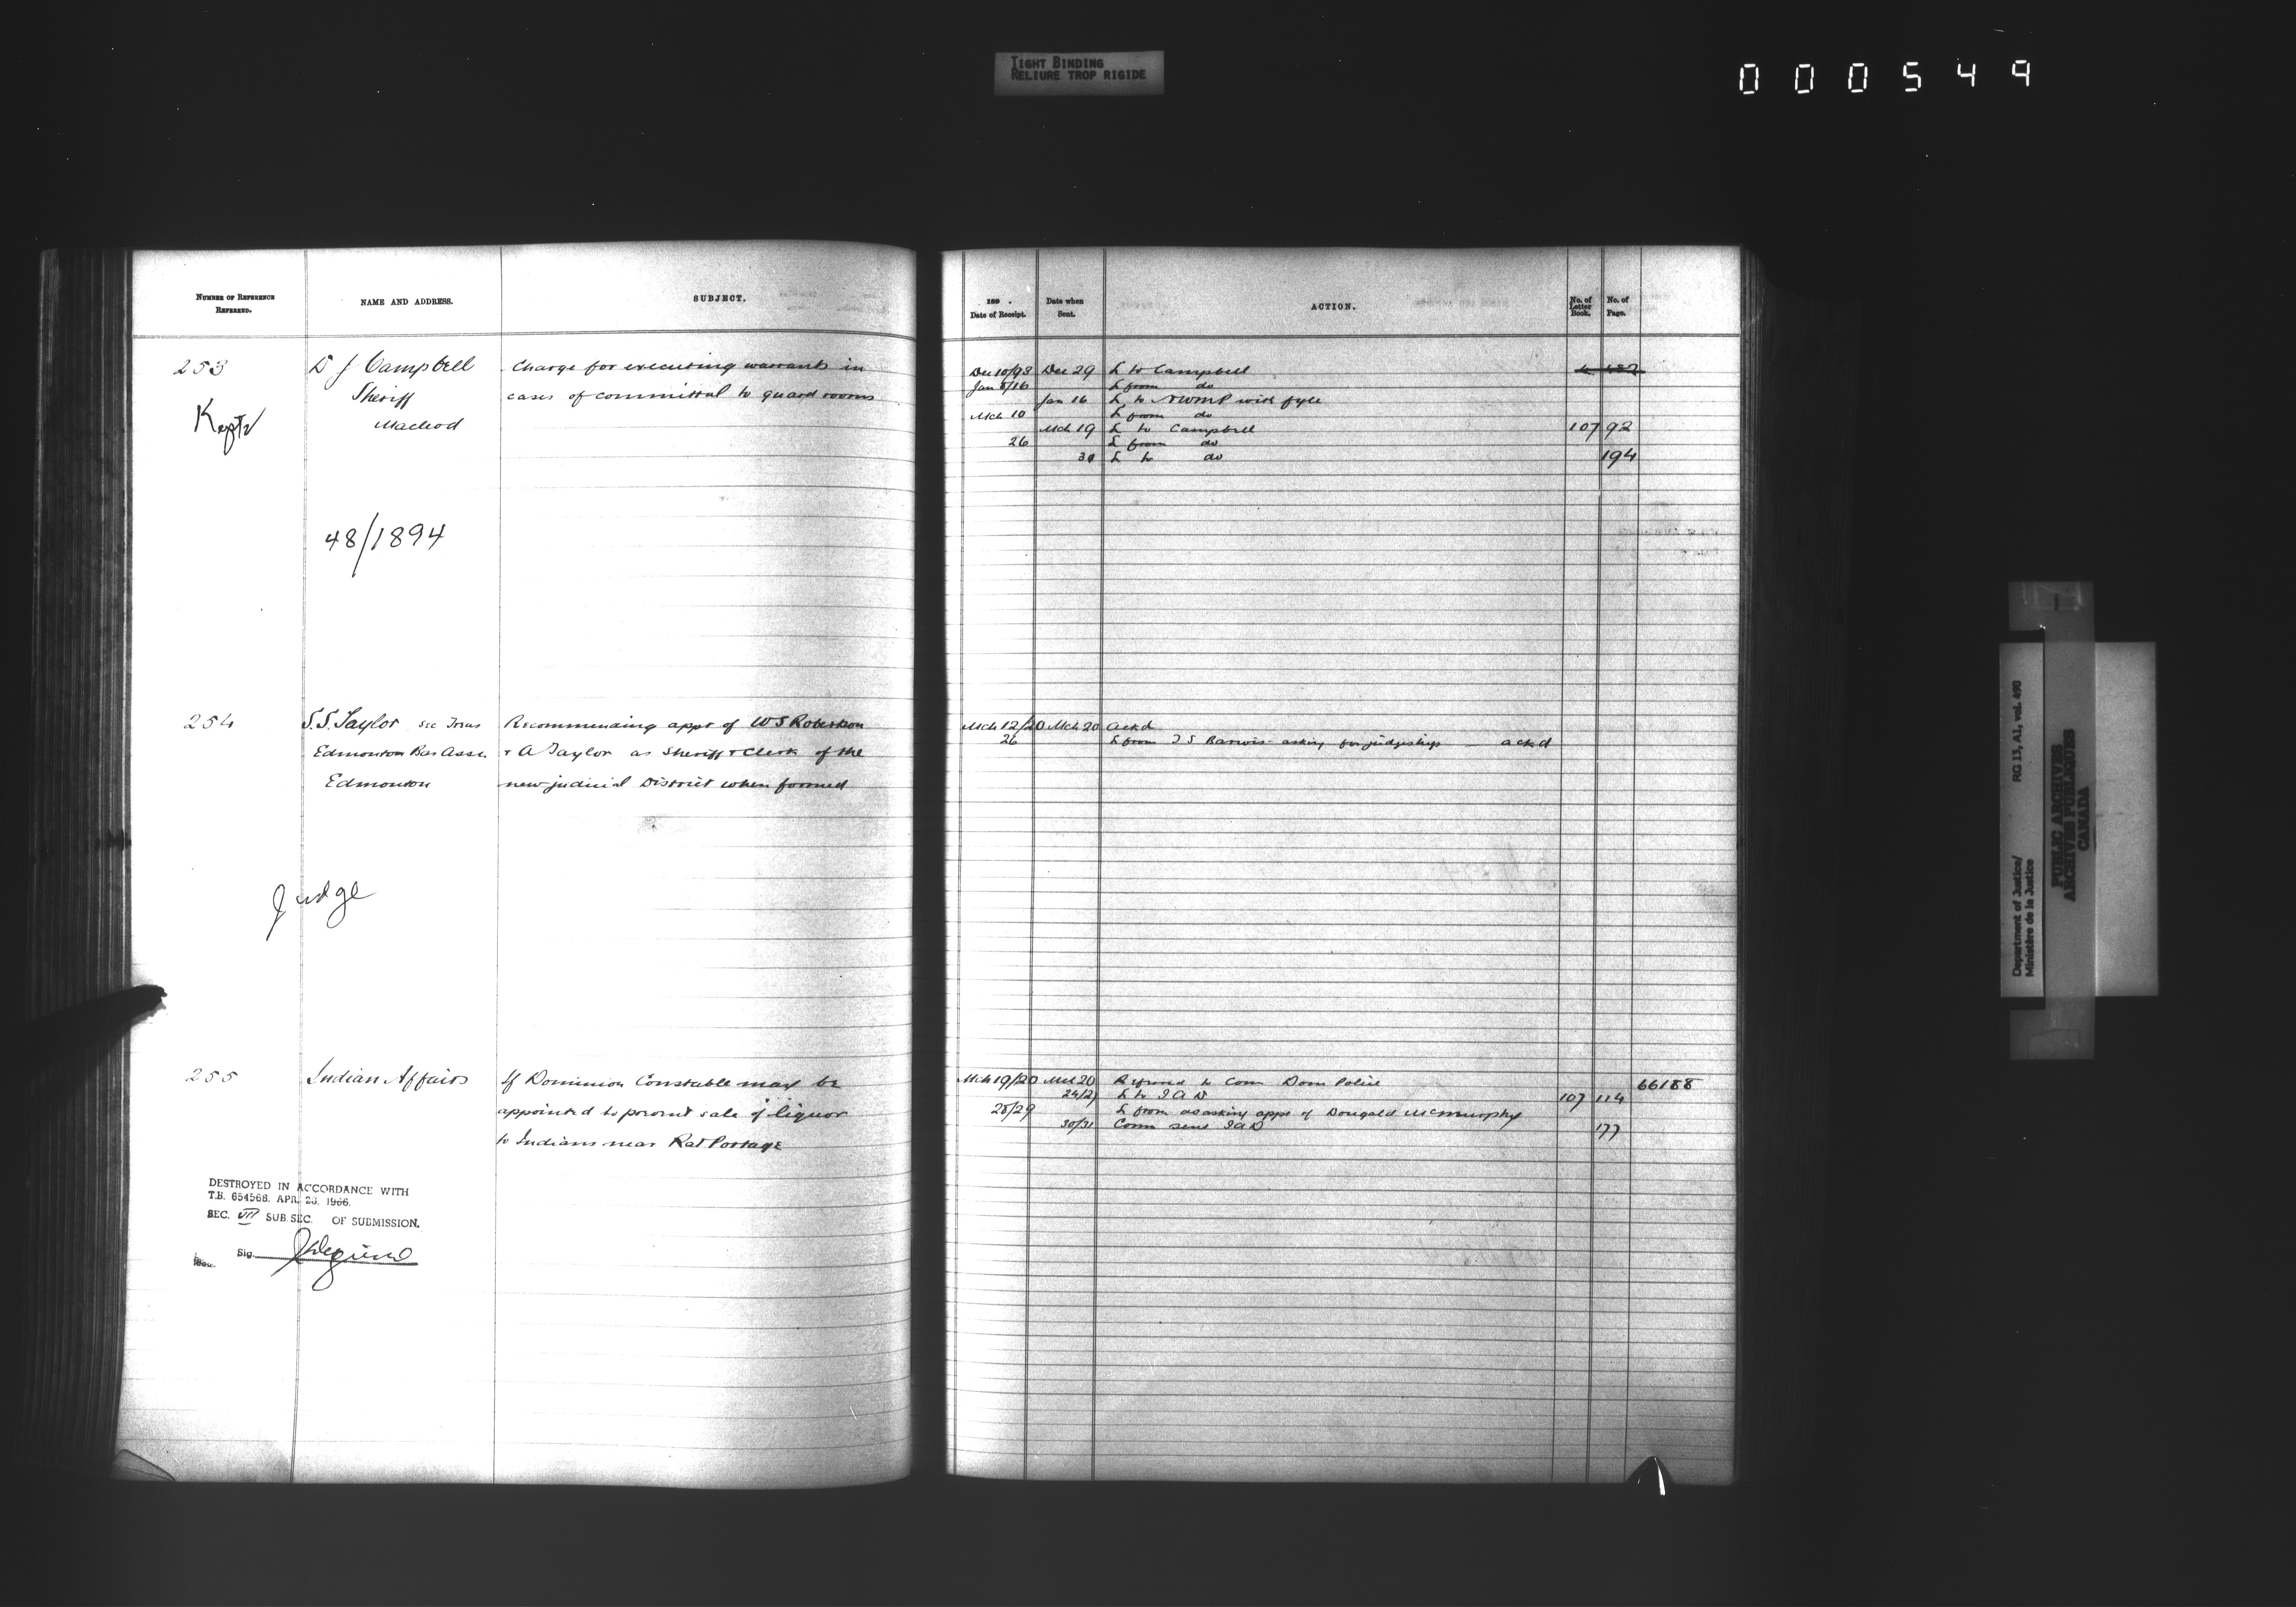 TIGHT BINDING
RELIURE TROP RIGIDE
000549
NUMBER OF REFERENCE
REFERRED.
NAME AND ADDRESS.
SUBJECT.
253
D J Campbell
Sheriff
Macleod
Charge for executing warrants in
cases of committal to guard rooms
Kept
48/1894
254
S.S. Taylor Sec Treas
Edmonton Bar Assn.
Edmonton
Recommending appt of W S Robertson
& A Taylor as Sheriff & Clerk of the
new judicial District when formed
Judge
255
Indian Affairs
If Dominion Constable may be
appointed to prevent sale of liquor
to Indians near Rat Portage
DESTROYED IN ACCORDANCE WITH
T.B. 654568. APR. 23. 1966.
SEC. VII SUB.SEC. OF SUBMISSION.
Sig.
189 .
Date of Receipt.
Date when
Sent.
ACTION.
No. of
Letter
Book.
No. of
Page.
Dec 10/93 Dec 29 L to Campbell
Jan 8/16 L from do
Jan 16 L to NWMP with fyle
Mch 10 L from do
Mch 19 L to Campbell 107 92
26 L from do
30 L to do 194
Mch 12/20 Mch 20 Ackd
26 L from J S Barwis asking for judgeship ackd
Mch 19/20 Mch 20 Referred to Com Dom Police 66188
24/27 L to I A D 107 114
28/29 L from do asking appt of Dougald McMurphy
30/31 Comn sent I A D 177
Department of Justice/
Ministère de la Justice
RG 13, A1, vol. 490
PUBLIC ARCHIVES
ARCHIVES PUBLIQUES
CANADA